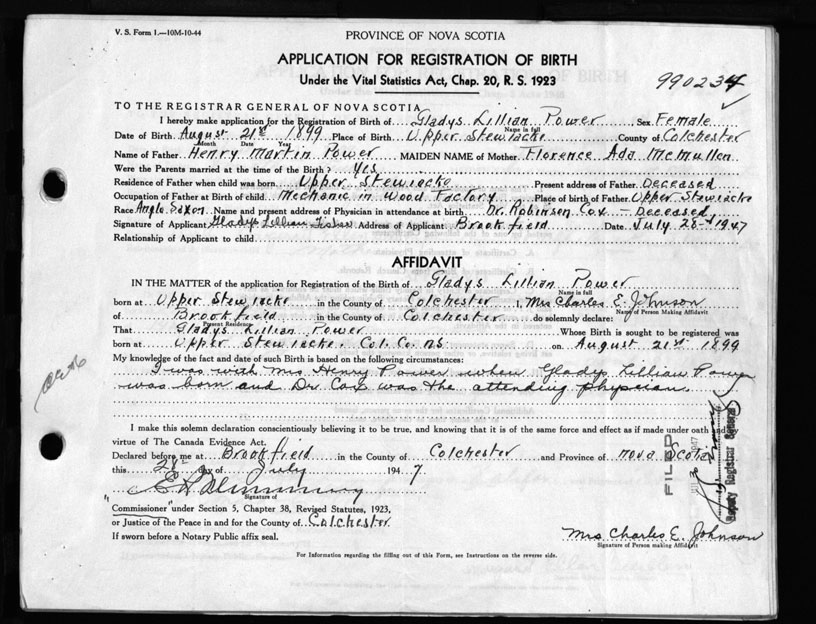 V. S. Form 1.—10M-10-44
PROVINCE OF NOVA SCOTIA
APPLICATION FOR REGISTRATION OF BIRTH
Under the Vital Statistics Act, Chap. 20, R. S. 1923
990234
TO THE REGISTRAR GENERAL OF NOVA SCOTIA
I hereby make application for the Registration of Birth of Gladys Lillian Power Sex Female
Name in full
Date of Birth August 21st 1899 Place of Birth Upper Stewiacke County of Colchester
Month Date Year
Name of Father Henry Martin Power MAIDEN NAME of Mother Florence Ada McMullen
Were the Parents married at the time of the Birth? Yes
Residence of Father when child was born Upper Stewiacke Present address of Father Deceased
Occupation of Father at Birth of child Mechanic in Wood Factory Place of birth of Father Upper Stewiacke
Race Anglo Saxon Name and present address of Physician in attendance at birth Dr. Robinson Cox – Deceased
Signature of Applicant Gladys Lillian Address of Applicant Brookfield Date July 28 1947
Relationship of Applicant to child
AFFIDAVIT
IN THE MATTER of the application for Registration of the Birth of Gladys Lillian Power
Name in full
born at Upper Stewiacke in the County of Colchester I, Mrs Charles E. Johnson
Name of Person Making Affidavit
of Brookfield in the County of Colchester do solemnly declare:
Present Residence
That Gladys Lillian Power Whose Birth is sought to be registered was
born at Upper Stewiacke. Col. Co. NS on August 21st 1899
My knowledge of the fact and date of such Birth is based on the following circumstances:
I was with Mrs Henry Power when Gladys Lillian Power
was born and Dr. Cox was the attending physician.
I make this solemn declaration conscientiously believing it to be true, and knowing that it is of the same force and effect as if made under oath and by
virtue of The Canada Evidence Act.
Declared before me at Brookfield in the County of Colchester and Province of Nova Scotia
this 28th day of July 1947
Signature of
Commissioner under Section 5, Chapter 38, Revised Statutes, 1923,
or Justice of the Peace in and for the County of Colchester
If sworn before a Notary Public affix seal.
Mrs Charles E. Johnson
Signature of Person making Affidavit
For Information regarding the filling out of this Form, see Instructions on the reverse side.
FILED
1947
Deputy Registrar General